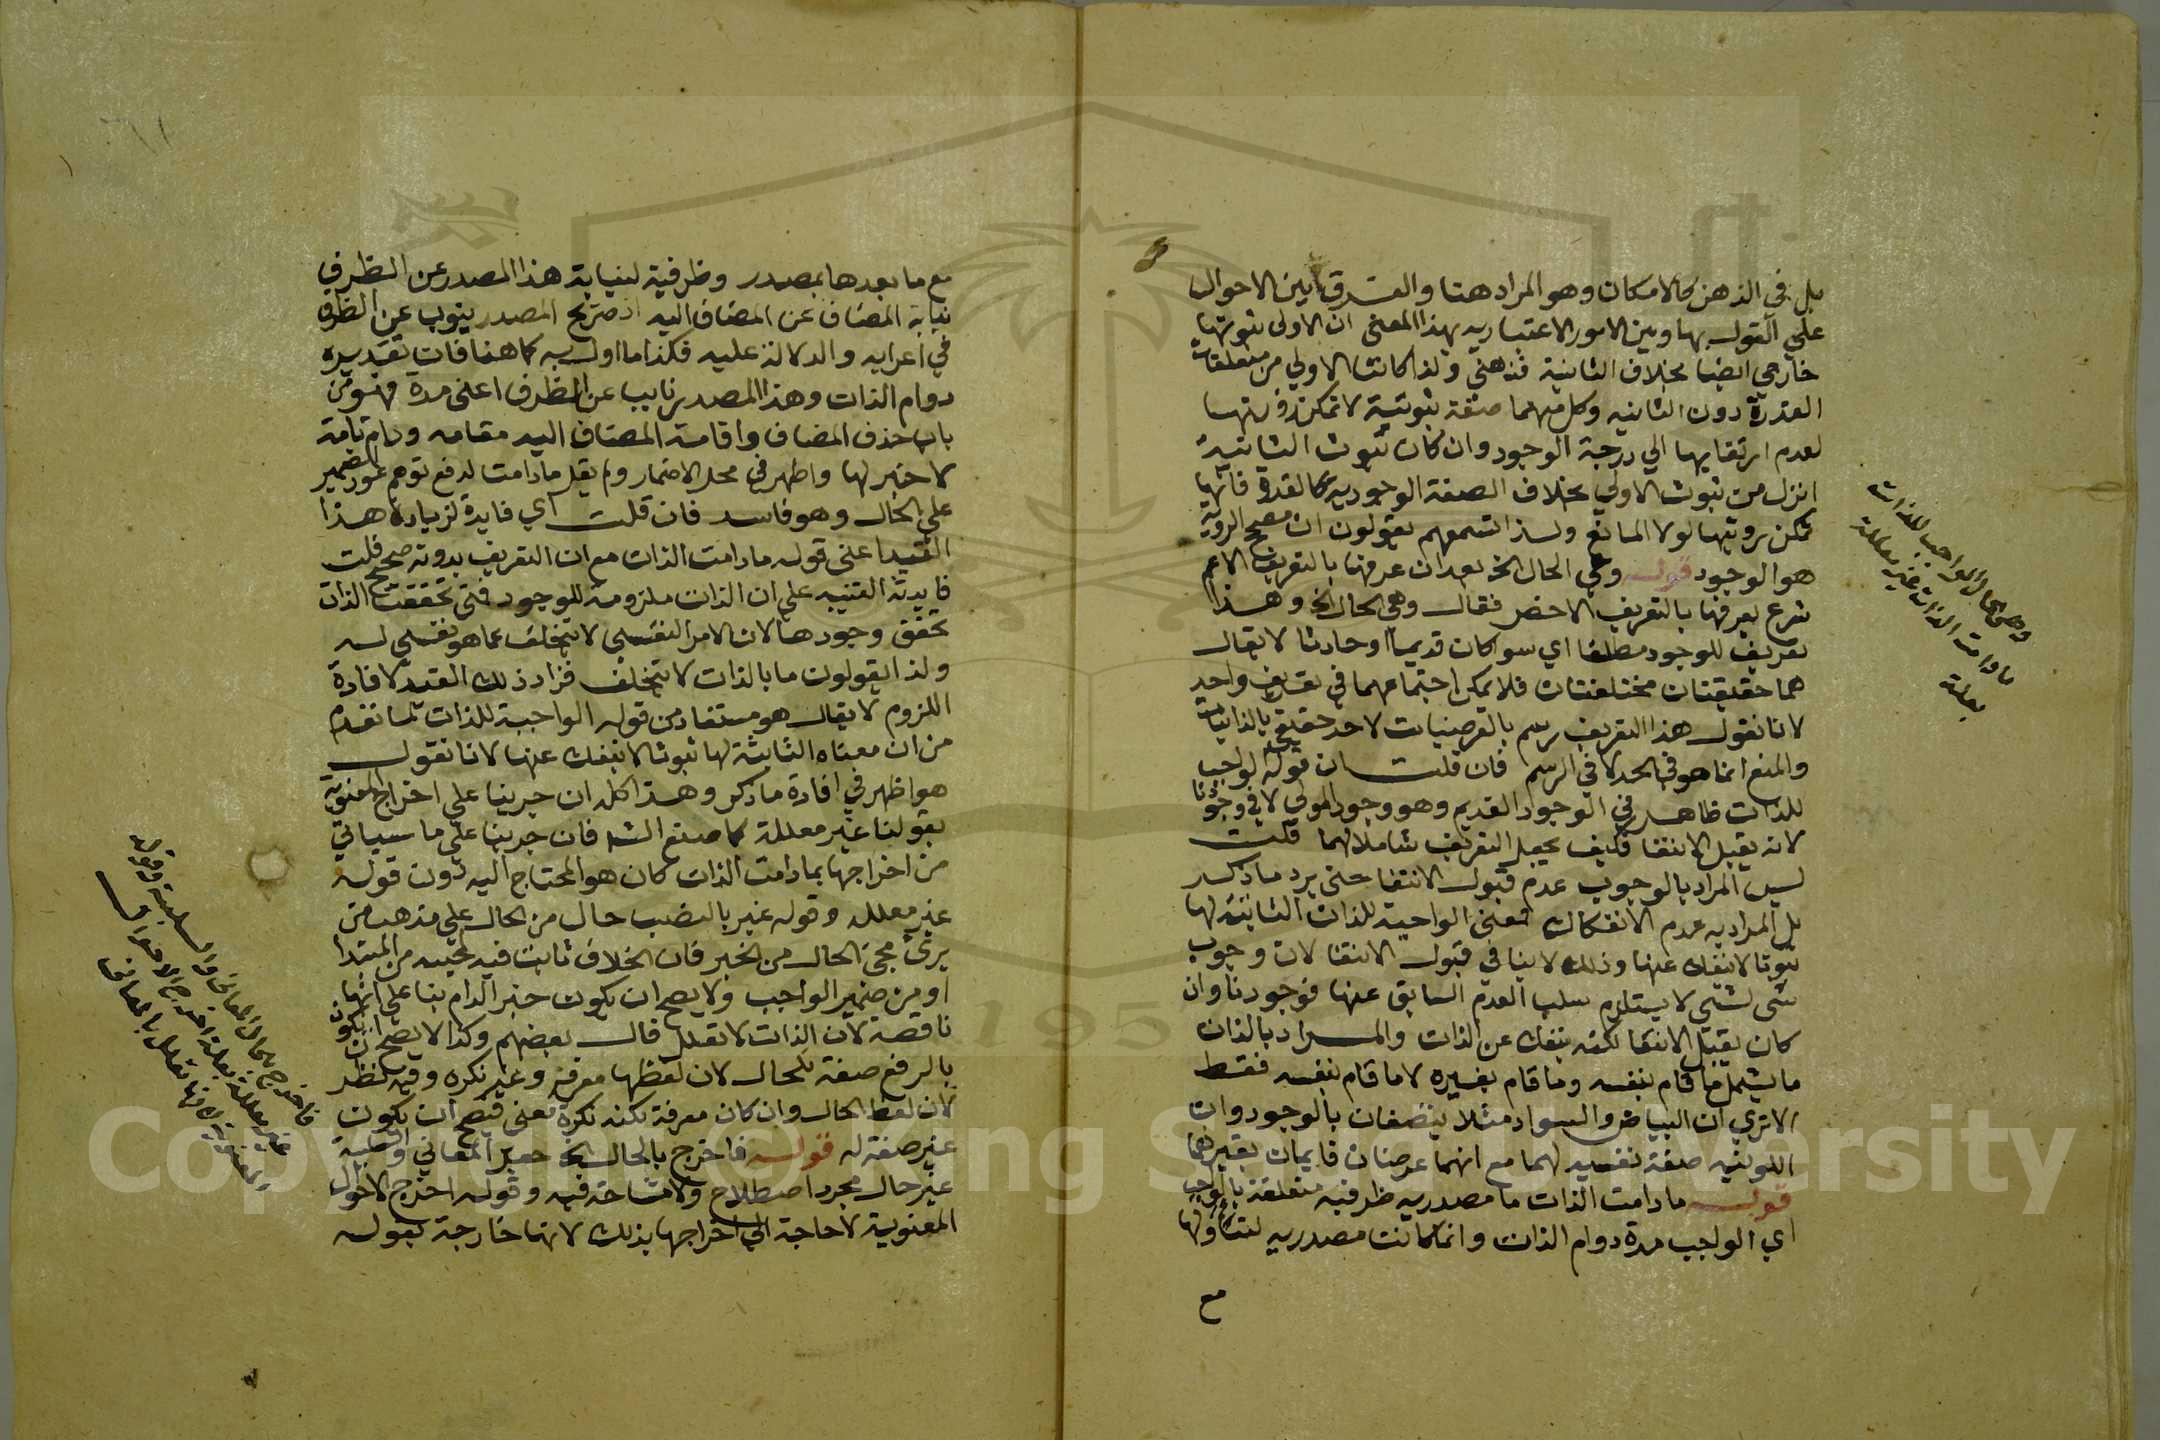 بل في الذهن كالامكان وهو المراد هنا والفرق بين الاحوال
علي القول بها وبين الامور الاعتباريه بهذا المعنى ان الاولى ثبوتها
خارجي ايضا بخلاف الثانية فذهني ولذا كانت الاولي من متعلقات
القدرة دون الثانيه وكل منهما صفة ثبوتية لا تمكن رؤيتها
لعدم ارتقايها الي درجة الوجود وان كان ثبوت الثانية
انزل من ثبوت الاولي بخلاف الصفة الوجوديه كالقدرة فانها
تمكن رويتها لولا المانع ولذا تسمعهم يقولون ان مصحح الروية
هو الوجود قوله وهي الحال الخ بعد ان عرفها بالتعريف الاعم
شرع يعرفها بالتعريف الاخص فقال وهي الحال الخ وهذا
تعريف للوجود مطلقا اي سوا كان قديما او حادثا لا يقال
هما حقيقتان مختلفتان فلا يمكن اجتماعهما في تعريف واحد
لانا نقول هذا التعريف رسم بالعرضيات لا حد حقيقي بالذاتيات
والمنع انما هو في الحد لا في الرسم فان قلت ان قوله الواجب
للذات ظاهر في الوجود القديم وهو وجود المولي لا في وجودنا
لانه يقبل الانتفا فكيف يجعل التعريف شاملا لهما قلت
ليس المراد بالوجوب عدم قبول الانتفا حتى يرد ما ذكر
بل المراد به عدم الانفكاك فمعنى الواجبة للذات الثابتة لها
ثبوتا لا ينفك عنها وذلك لا ينافي قبول الانتفا لان وجوب
شي لشي لا يستلزم سلب العدم السابق عنها فوجودنا وان
كان يقبل الانتفا لكنه لا ينفك عن الذات والمراد بالذات
ما يشمل ما قام بنفسه وما قام بغيره لا ما قام بنفسه فقط
الا تري ان البياض والسواد مثلا يتصفان بالوجود وان
اللونيه صفة نفسيه لهما مع انهما عرضان قايمان بغيرهما
قوله ما دامت الذات ما مصدريه ظرفيه متعلقة بالواجب
اي الواجب مدة دوام الذات وانما كانت مصدريه لتاولها
مع
وهي الحال الواجب للذات
ما دامت الذات غير معللة
بعلة
مع ما بعدها بمصدر وظرفية لنيابة هذا المصدر عن الظرف
نيابة المضاف عن المضاف اليه اذ صريح المصدر ينوب عن الظرف
في اعرابه والدلالة عليه فكذا ما اول به كما هنا فان تقديره
دوام الذات وهذا المصدر نايب عن الظرف اعني مدة فهو من
باب حذف المضاف واقامة المضاف اليه مقامه ودام تامة
لا خبر لها واظهر في محل الاضمار ولم يقل ما دامت لدفع توهم عود الضمير
علي الحال وهو فاسد فان قلت اي فايدة لزيادة هذا
القيد اعني قوله ما دامت الذات مع ان التعريف بدونه صحيح قلت
فايدته التنبيه علي ان الذات ملزومة للوجود فمتى تحققت الذات
تحقق وجودها لان الامر النفسي لا يتخلف عما هو نفسي له
ولذا يقولون ما بالذات لا يتخلف فزاد ذلك القيد لافادة
اللزوم لا يقال هو مستفاد من قوله الواجبة للذات لما تقدم
من ان معناه الثابتة لها ثبوتا لا ينفك عنها لانا نقول
هو اظهر في افادة ما ذكر وهذا كله ان جرينا علي اخراج المعنوية
بقولنا غير معللة كما صنع الش فان جرينا علي ما سياتي
من اخراجها بما دامت الذات كان هو المحتاج اليه دون قوله
غير معلله وقوله غير بالنصب حال من الحال علي مذهب من
يرى مجئ الحال من الخبر فان الخلاف ثابت فيه كمجيه من المبتدا
او من ضمير الواجب ولا يصح ان يكون خبر الدام بنا علي انها
ناقصة لان الذات لا تعلل قال بعضهم وكذا لا يصح ان يكون
بالرفع صفة للحال لان لفظها معرفة وغير نكره وفيه نظر
لان لفظ الحال وان كان معرفة لكنه نكرة معنى فيصح ان يكون
غير صفة له قوله فاخرج بالحال الخ جعل المعاني والسلبية
غير حال مجرد اصطلاح ولا مشاحة فيه وقوله اخرج الاحوال
المعنوية لا حاجة الي اخراجها بذلك لانها خارجة بقوله
فاخرج بالحال المعاني والسلبية وقوله
غير معللة بعلة اخرج الاحوال
المعنوية لانها تعلل بالمعاني